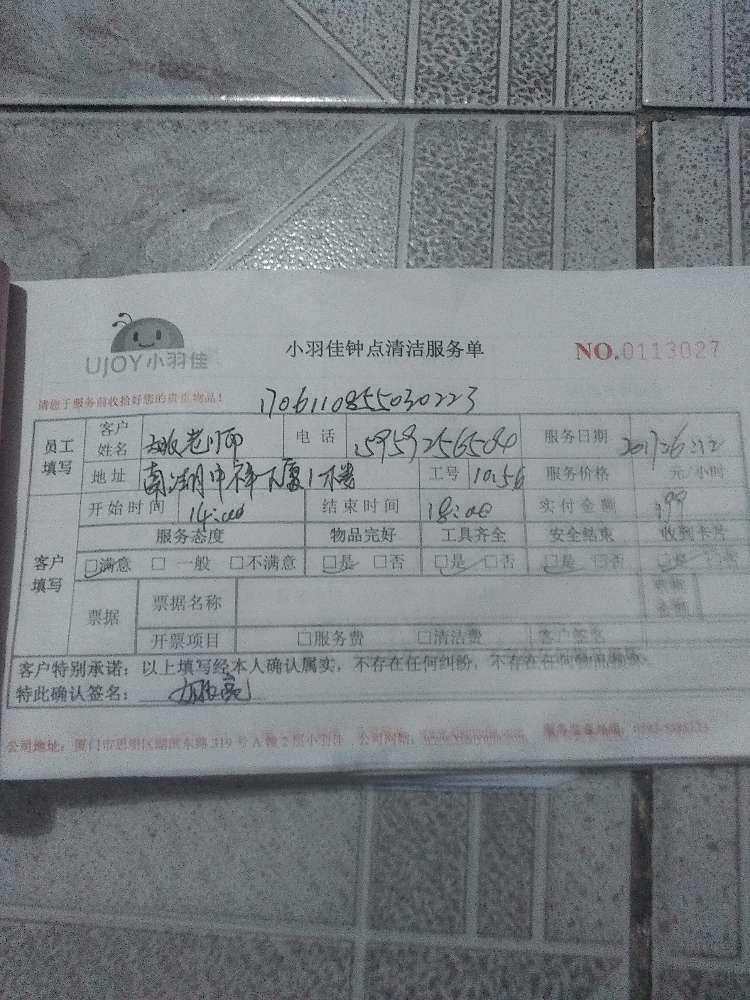 UJOY小羽佳
小羽佳钟点清洁服务单
NO.0113027
请您于服务前收拾好您的贵重物品!
1706110855030223
员工填写 客户姓名 老师 电话 15959256504 服务日期 2017.6.12
地址 南湖中祥大厦 工号 1056 服务价格 元/小时
开始时间 14:00 结束时间 18:00 实付金额 199
客户填写 服务态度 物品完好 工具齐全 安全结束 收到卡片
□满意 □一般 □不满意 □是 □否 □是 □否 □是 □否 □是 □否
票据 票据名称
开票项目 □服务费 □清洁费 客户签名
客户特别承诺:以上填写经本人确认属实,不存在任何纠纷,不存在任何物品损坏。
特此确认签名:
公司地址:厦门市思明区湖滨东路319号A幢2层小羽佳 公司网站: